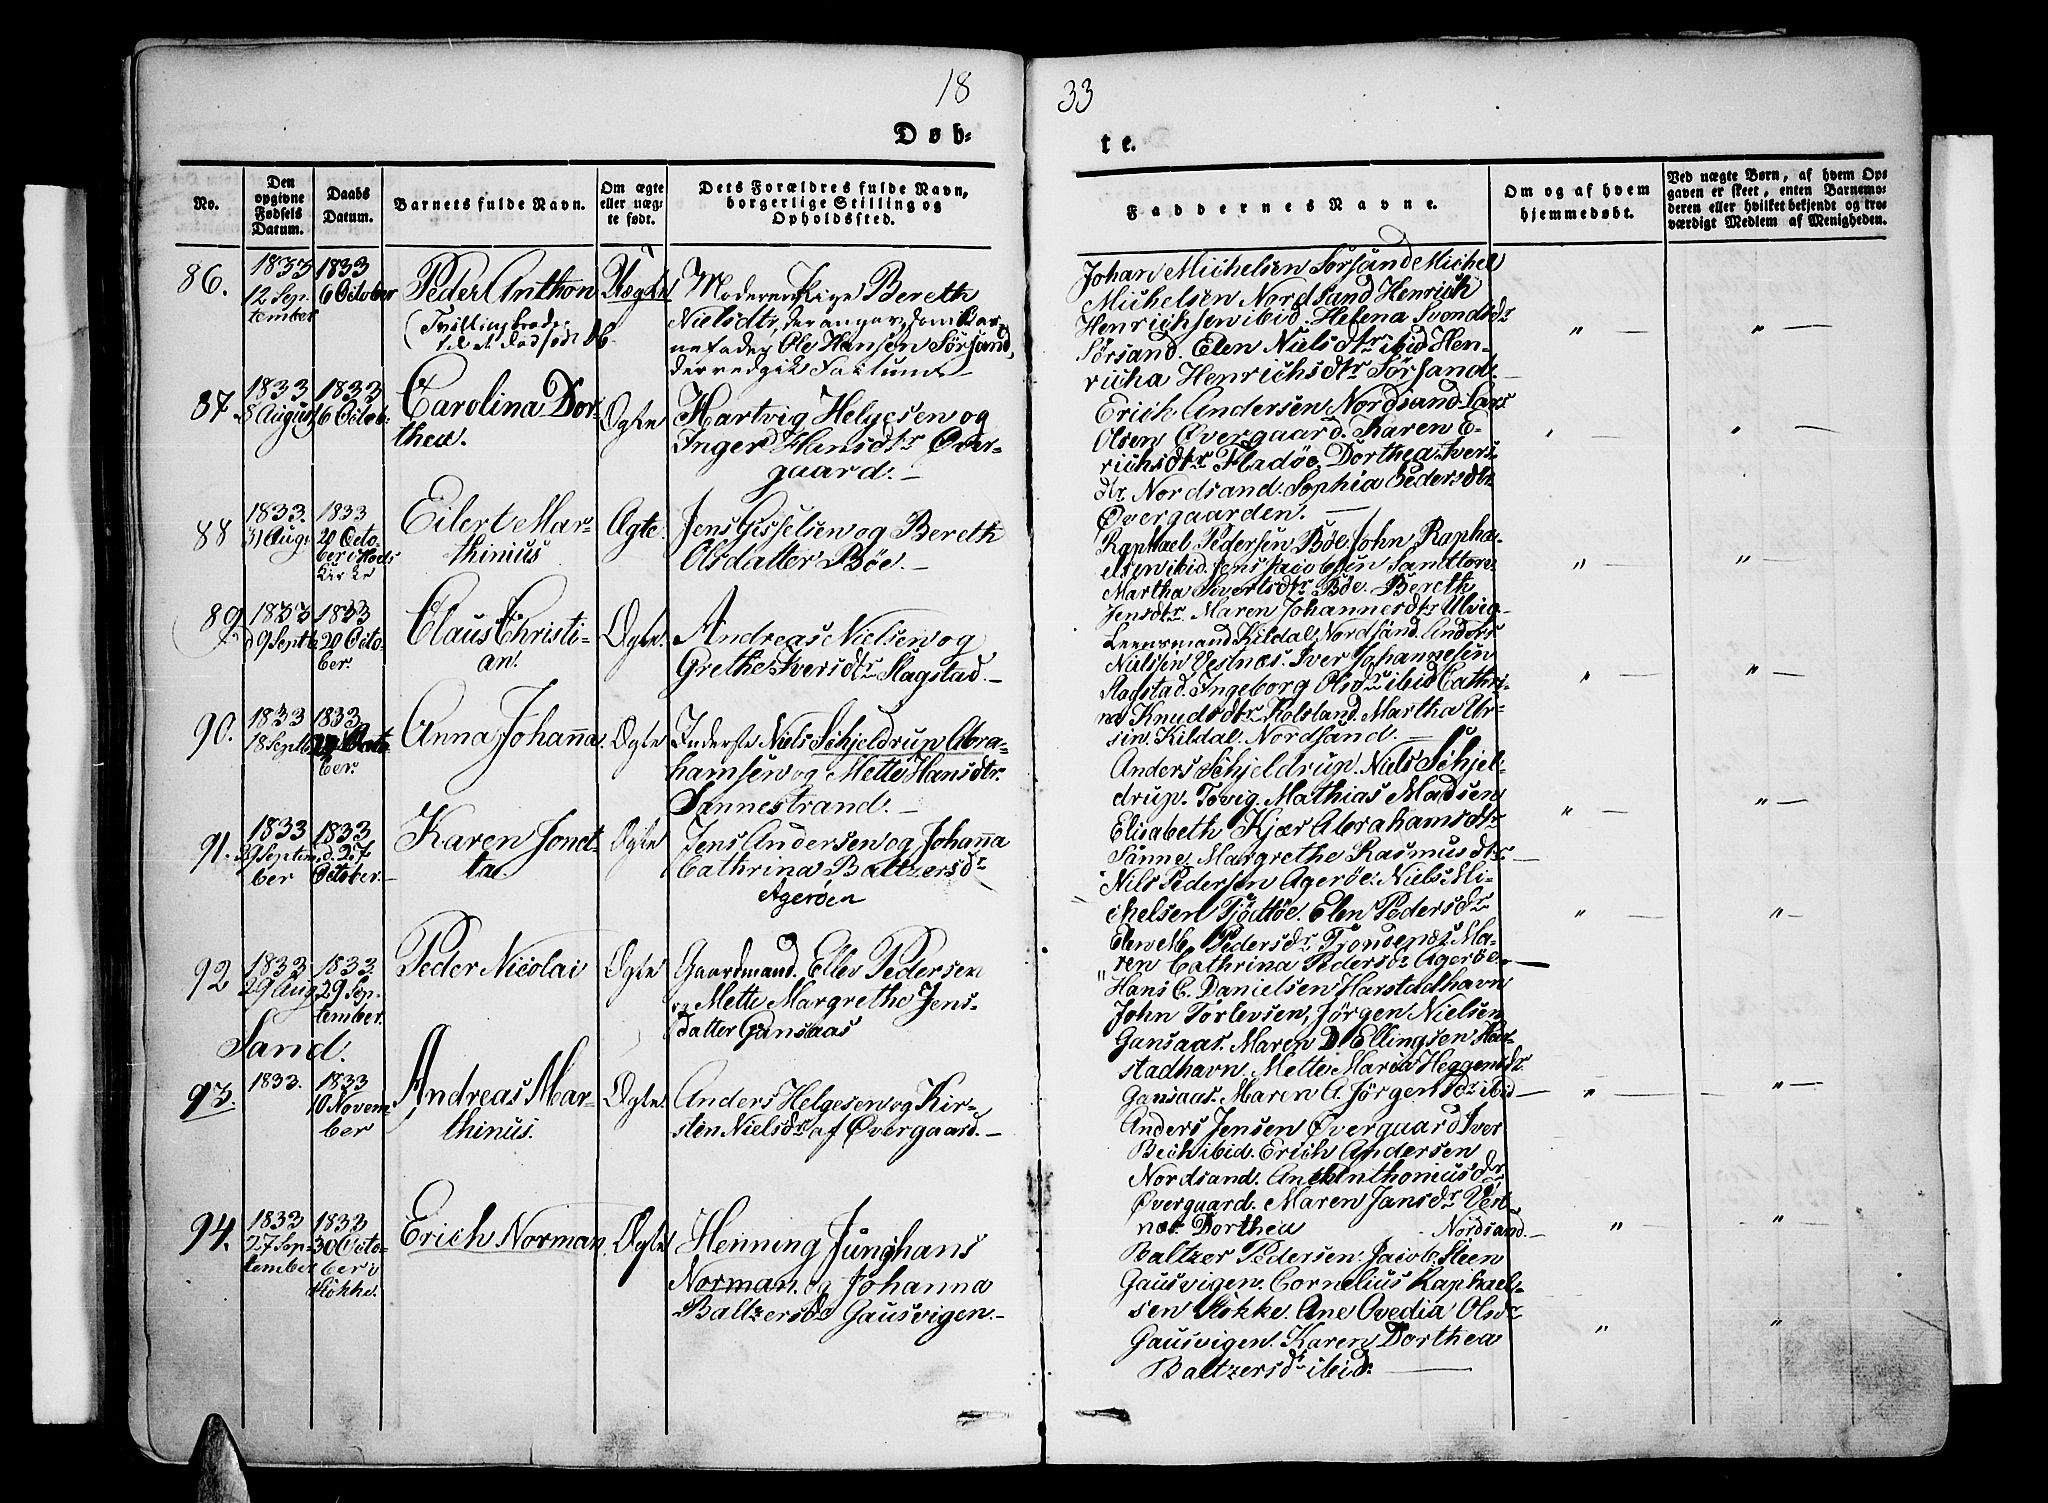 18
33
Døb-
te.
No.
Den
opgivne
Fødsels
Datum.
Daabs
Datum.
Barnets fulde Navn.
Om ægte
eller uæg-
te født.
Dets Forældres fulde Navn,
borgerlige Stilling og
Opholdssted.
Faddernes Navne.
Om og af hvem
hjemmedøbt.
Ved uægte Børn, af hvem Op-
gaven er skeet, enten Barnemo-
deren eller hvilket bekjendt og tro-
værdigt Medlem af Menigheden.
86.
1833
12 Sep-
tember
1833
6 October
Peder Anthon
(Tvilling
Uægte
Moderen Pige Bereth
Nielsdtr, der angav som Bar-
nefader Ole Hansen Sørsand,
der vedgik Factum
Johan Michelsen Sørsand Michel
Michelsen Nordsand Henrich
Henrichsen ibid. Helena Svendsdr
Sørsand. Elen Nielsdtr ibid Hen-
richa Henrichsdtr Sørsand.
87.
1833
August
1833
6 Octob.
Carolina Dor-
thea.
Ægte
Hartvig Helgesen og
Inger Hansdtr Øver-
gaard.
Erich Andersen Nordsand. Lars
Olsen Øvergaard. Karen E-
richsdtr Fladöe. Dorthea Ivers
dtr Nordsand. Sophia Pedersdtr
Øvergaarden.
88
1833.
31 Aug.
1833
20 Octo-
ber i
Kirke
Eilert Mar-
thinius
Ægte.
Jens Gisselsen og Bereth
Olsdatter Böe.
Raphael Pedersen Böe. John Rapha-
elsen ibid. Jens Jacobsen Sandtorv
Martha Sivertsdtr Böe. Bereth
Jensdtr. Maren Johannesdtr Ulvig
89.
1833
d 9 Septb.
1833
20 Octo-
ber.
Claus Christi-
an.
Ægte.
Andreas Nielsen og
Grethe Iversdtr Slagstad.
Leensmand Kildal Nordsand. Anders
Nielsen Vestnæs. Iver Johannesen
Slagstad. Ingeborg Olsdtr ibid Cathri-
na Knudsdtr Rolsland. Martha Ur-
sin. Kildal. Nordsand.
90.
1833
18 Septb.
1833
Octo-
ber.
Anna Johanna
Ægte
Inderste Niels Schjeldrup Abra-
hamsen og Mette Hansdtr.
Sannestrand.
Anders Schjeldrup. Niels Schjel-
drup. Tovig. Mathias Madsen
Elisabeth Kjær Abrahamsdtr
Sånne. Margrethe Rasmusdtr
91.
1833
Septem-
ber
1833
d. 27
October.
Karen Jonet-
ta.
Ægte
Jens Andersen og Johanna
Cathrina Baltzersdr
Ageröen
Nils Pedersen Ageröe. Niels Mi-
chelsen Tjödtöe. Elen Pedersdr
Elen M. Pedersdr Trondenæs Ma-
ren Cathrina Pedersdr Ageröe.
92
1833
29 Aug.
1833.
29 Sep-
tember.
Sand.
Peder Nicolai
Ægte
Gaardmand. Ellev Pedersen
og Mette Margrethe Jens-
datter Gansaas
Hans C. Danielsen Harstadhavn
John Torlevsen, Jörgen Nielsen
Gansaas. Maren D Ellingsen Har-
stadhavn. Mette Maria Heggensdr
Gansaas. Maren A. Jörgensdr ibid
93.
1833.
1833
10 Novem
ber
Andreas Mar-
thinus.
Ægte
Anders Helgesen og Kir-
sten Nielsdr af Øvergaard.
Anders Jensen Øvergaard Iver
Bech ibid. Erich Andersen
Nordsand. Ane Anthoniusdr
Øvergaard. Maren Jansdr Vest-
næs Dorthea Nordsand.
94.
1833
27 Sep-
tember
1833
30 Octo-
ber i
Stökke.
Erich Norman
Ægte
Henning Junghans
Norman. og Johanna
Baltzersdr Gausvigen.
Baltzer Pedersen. Jacob Steen
Gausvigen. Cornelius Raphael-
sen Stökke. Ane Ovedia Olsdr
Gausvigen. Karen Dorthea
Baltzersdr ibid.